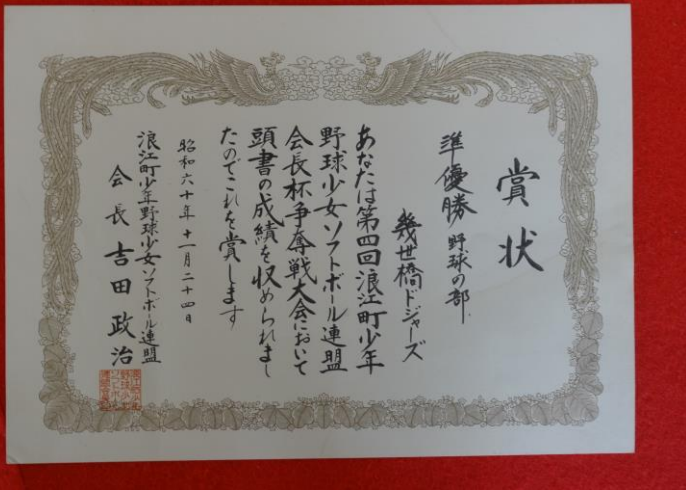 賞状
準優勝 野球の部
幾世橋ドジャーズ
あなたは第四回浪江町少年
野球少女ソフトボール連盟
会長杯争奪戦大会において
頭書の成績を収められまし
たのでこれを賞します
昭和六十年十一月二十四日
浪江町少年野球少女ソフトボール連盟
会長 吉田政治